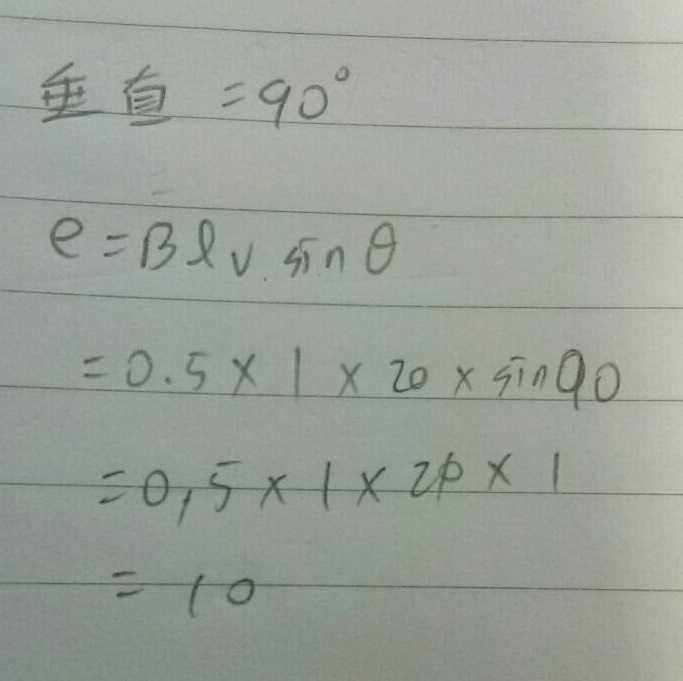 垂直 = 90°
e = Blv sinθ
= 0.5 × 1 × 20 × sin90
= 0,5 × 1 × 20 × 1
= 10